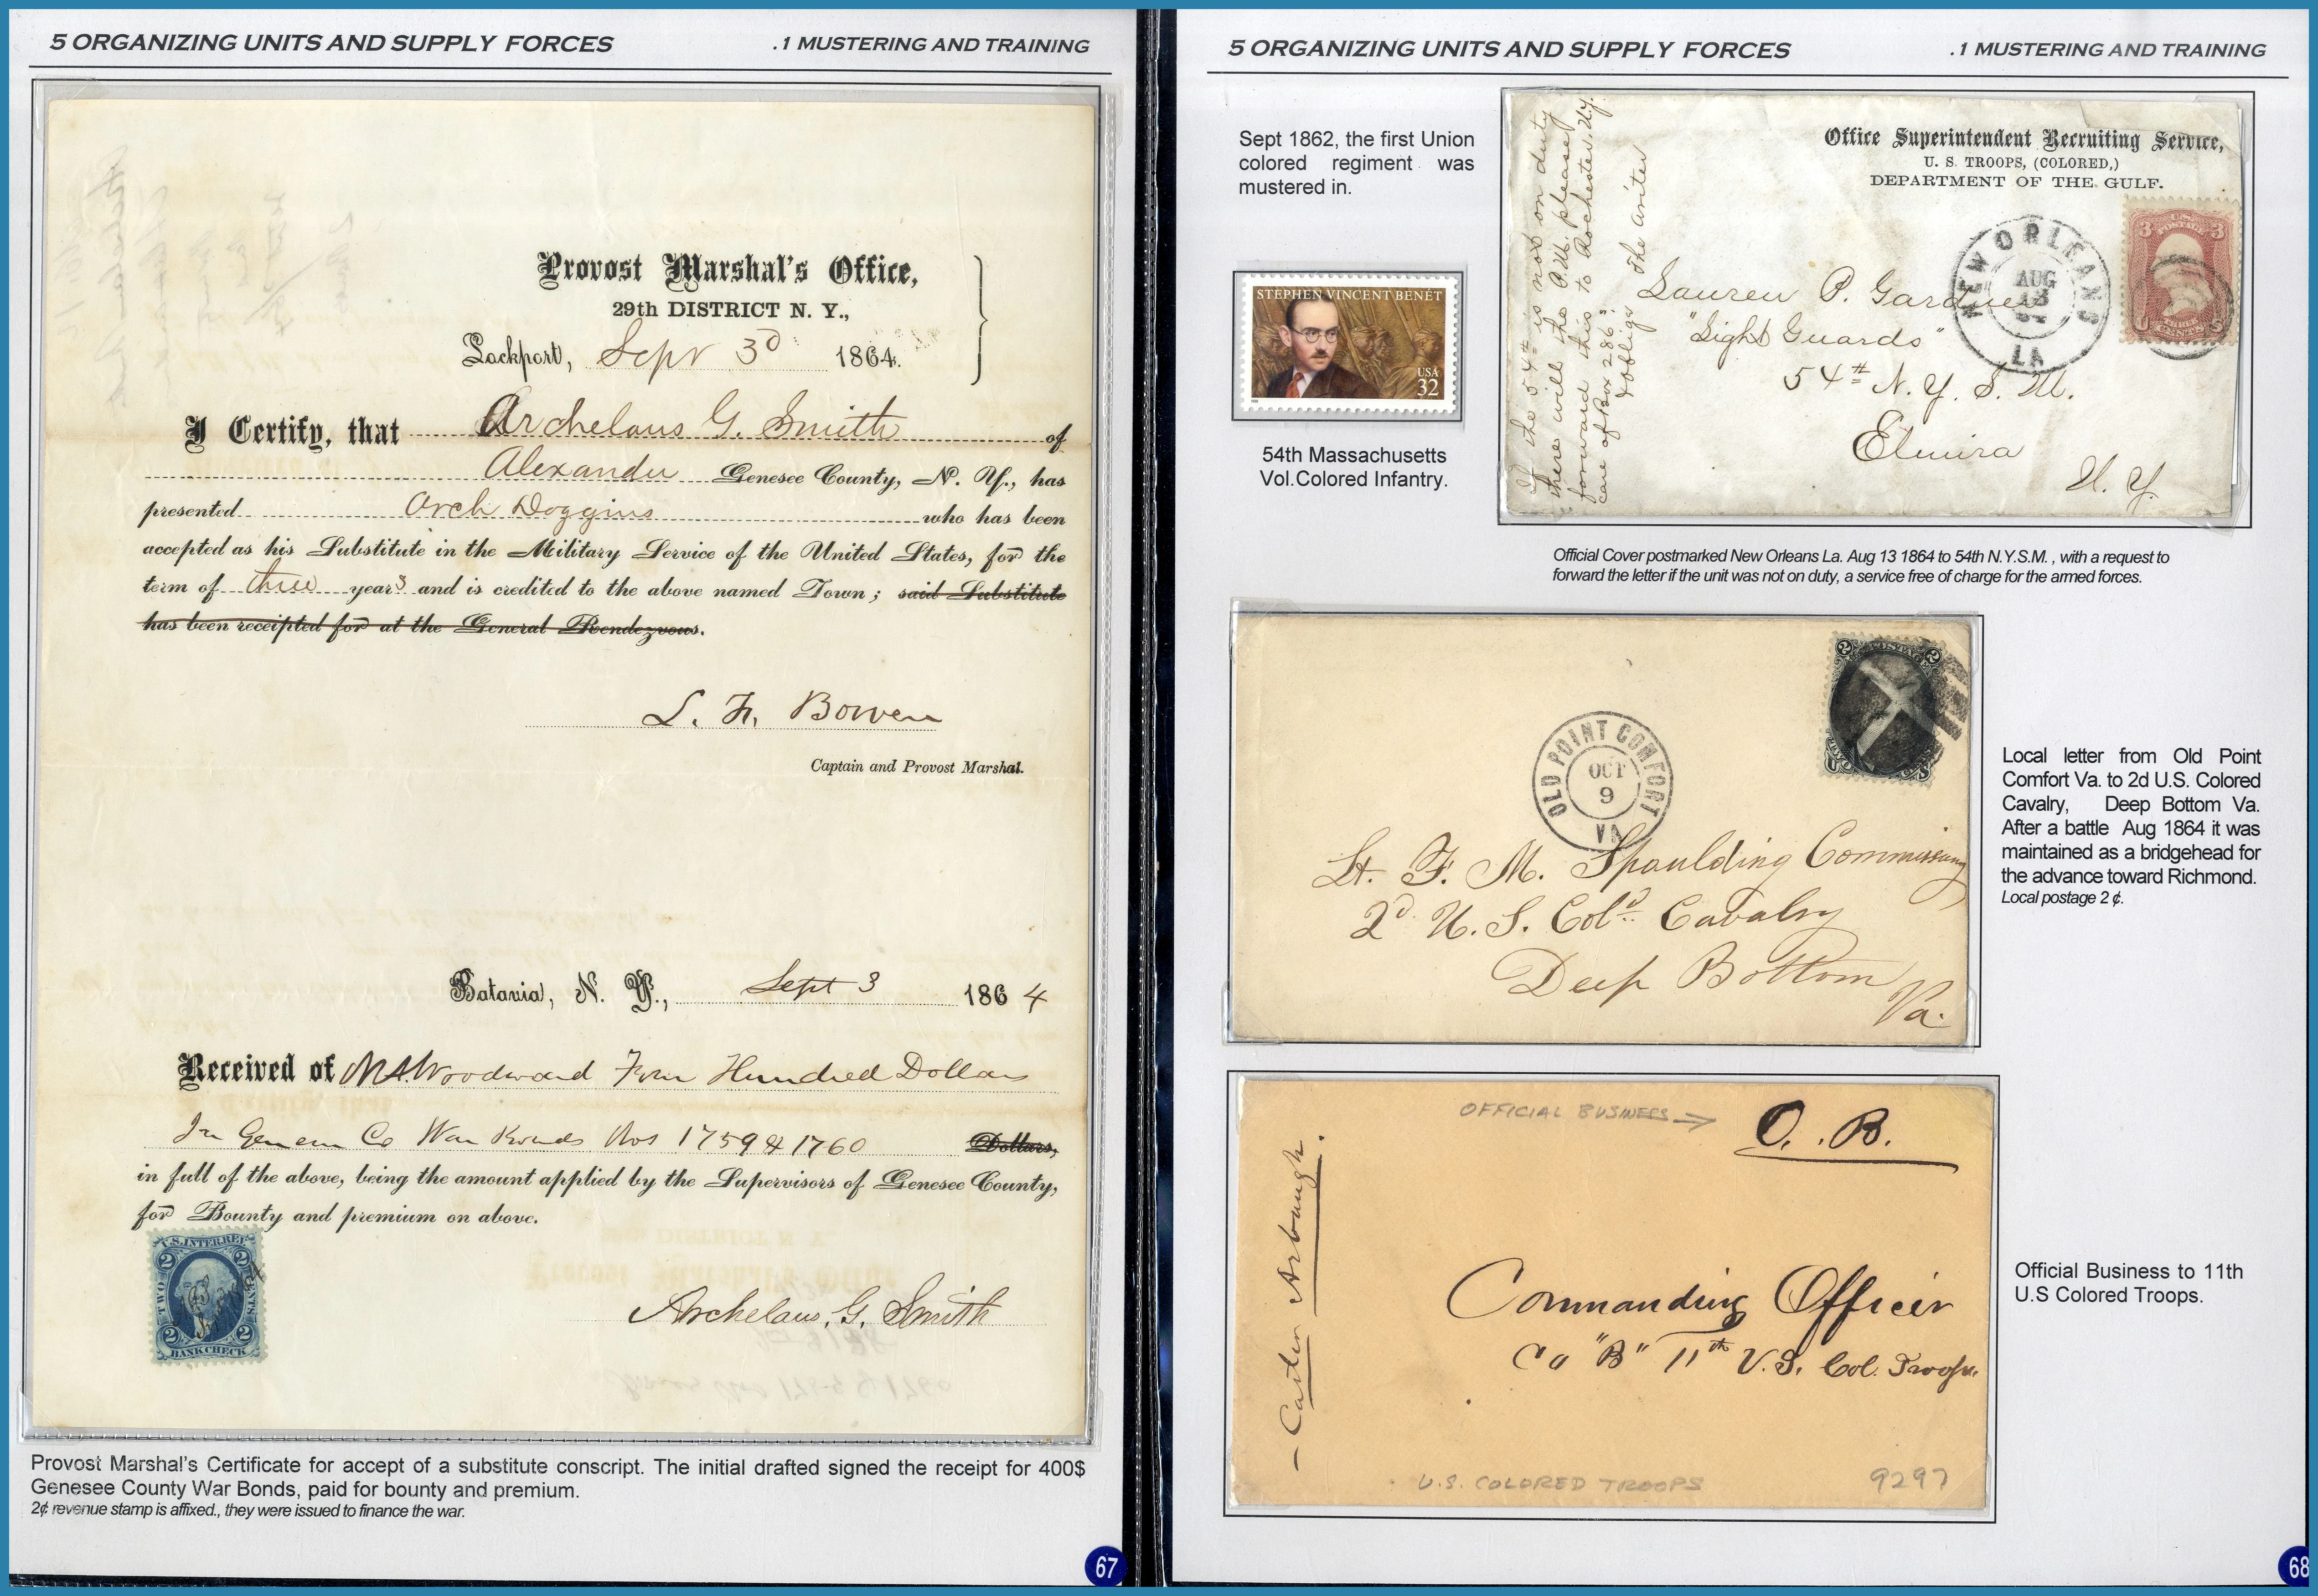 5 ORGANIZING UNITS AND SUPPLY FORCES
.1 MUSTERING AND TRAINING
Provost Marshal's Office,
29th DISTRICT N. Y.,
Lockport, Sept 3d 1864.
I Certify, that Archelaus G. Smith of
Alexander Genesee County, N. Y., has
presented Arch Doggins who has been
accepted as his Substitute in the Military Service of the United States, for the
term of three years and is credited to the above named Town; said Substitute
has been receipted for at the General Rendezvous.
L. F. Bowen
Captain and Provost Marshal.
Batavia, N. Y., Sept 3 1864
Received of Woodward Four Hundred Dollars
In Co War Nos 1759 & 1760 Dollars,
in full of the above, being the amount applied by the Supervisors of Genesee County,
for Bounty and premium on above.
U.S. INTER. REV.
2 2
TWO CENTS
2 2
BANK CHECK
Archelaus. G. Smith
Provost Marshal's Certificate for accept of a substitute conscript. The initial drafted signed the receipt for 400$
Genesee County War Bonds, paid for bounty and premium.
2¢ revenue stamp is affixed., they were issued to finance the war.
67
5 ORGANIZING UNITS AND SUPPLY FORCES
.1 MUSTERING AND TRAINING
Sept 1862, the first Union
colored regiment was
mustered in.
STEPHEN VINCENT BENÉT
USA
32
54th Massachusetts
Vol.Colored Infantry.
If the 54th is not on duty
there will the P.M. please
forward this to Rochester N.Y.
care of Box 286?
& oblige The writer
Office Superintendent Recruiting Service,
U. S. TROOPS, (COLORED,)
DEPARTMENT OF THE GULF.
NEW ORLEANS
AUG
13
LA
U.S.
3 POSTAGE 3
Lauren P. Gardner
"Light Guards"
54th N. Y. S. M.
Elmira
N. Y.
Official Cover postmarked New Orleans La. Aug 13 1864 to 54th N.Y.S.M. , with a request to
forward the letter if the unit was not on duty, a service free of charge for the armed forces.
2 POSTAGE 2
U S
OLD POINT COMFORT
OCT
9
VA
Lt. F. M. Spaulding Commissary
2d U. S. Cold Cavalry
Deep Bottom
Va.
Local letter from Old Point
Comfort Va. to 2d U.S. Colored
Cavalry, Deep Bottom Va.
After a battle Aug 1864 it was
maintained as a bridgehead for
the advance toward Richmond.
Local postage 2 ¢.
OFFICIAL BUSINESS → O. B.
Carter Asbaugh.
Commanding Officer
Co "B" 11th U.S. Col. Troops.
U.S. COLORED TROOPS
9297
Official Business to 11th
U.S Colored Troops.
68